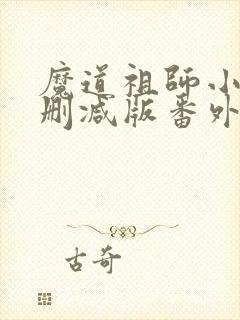 魔道祖师小
删减版番外
古奇